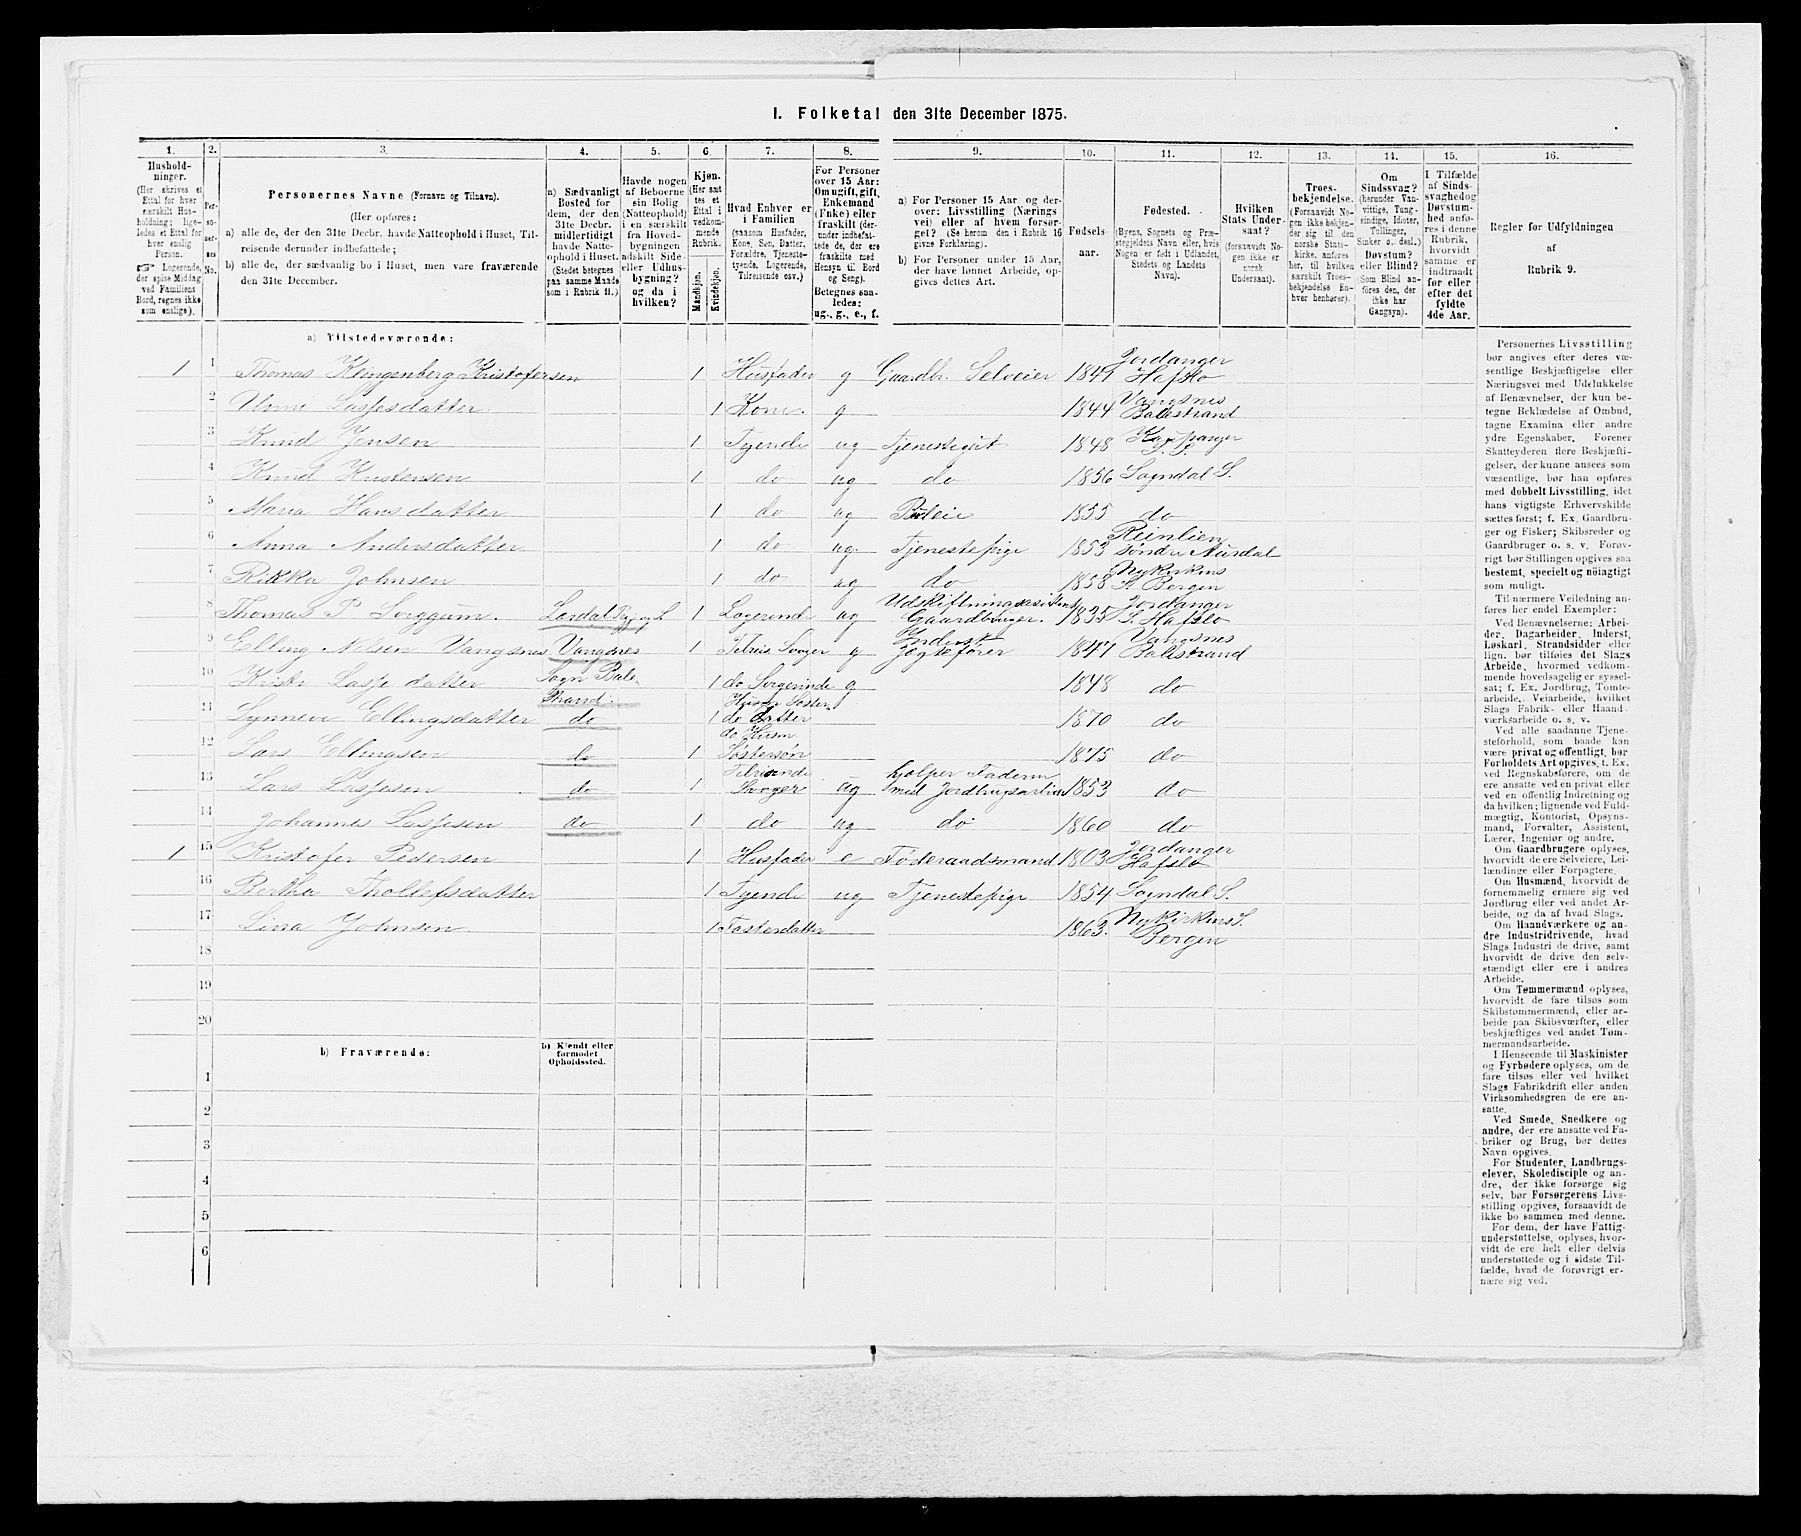 I. Folketal den 31te December 1875.
1. 2. 3. 4. 5. 6. 7. 8. 9. 10. 11. 12. 13. 14. 15. 16.
Hushold-
ninger.
(Her skrives et
Ettal for hver
særskilt Hus-
holdning; lige-
ledes et Ettal for
hver enslig
Person.
☞ Logerende,
der spise Middag
ved Familiens
Bord, regnes ikke
som enslige).
Per-
so-
ner-
nes
No.
Personernes Navne (Fornavn og Tilnavn).
(Her opføres:
a) alle de, der den 31te Decbr. havde Natteophold i Huset, Til-
reisende derunder indbefattede;
b) alle de, der sædvanlig bo i Huset, men vare fraværende
den 31te December.
a) Sædvanligt
Bosted for
dem, der den
31te Decbr.
midlertidigt
havde Natte-
ophold i Huset.
(Stedet betegnes
paa samme Maade
som i Rubrik 11.)
Havde nogen
af Beboerne
sin Bolig
(Natteophold)
i en særskilt
fra Hoved-
bygningen
adskilt Side-
eller Udhus-
bygning?
og da i
hvilken?
Kjøn.
(Her sæt-
tes et
Ettal i
vedkom-
mende
Rubrik.
Mandkjøn.
Kvindekjøn.
Hvad Enhver er
i Familien
(saasom Husfader,
Kone, Søn, Datter,
Forældre, Tjeneste-
tyende, Logerende,
Tilreisende osv.)
For Personer
over 15 Aar:
Om ugift, gift,
Enkemand
(Enke) eller
fraskilt (der-
under indbefat-
tede de, der ere
fraskilte med
Hensyn til Bord
og Seng).
Betegnes saa-
ledes:
ug., g., e., f.
a) For Personer 15 Aar og der-
over: Livsstilling (Nærings-
vei) eller af hvem forsør-
get? (Se herom den i Rubrik 16
givne Forklaring).
b) For Personer under 15 Aar,
der have lønnet Arbeide, op-
gives dettes Art.
Fødsels-
aar.
Fødested.
(Byens, Sognets og Præ-
stegjeldets Navn eller, hvis
Nogen er født i Udlandet,
Stedets og Landets
Navn).
Hvilken
Stats Under-
saat?
(forsaavidt No-
gen ikke er
norsk
Undersaat).
Troes-
bekjendelse.
(Forsaavidt No-
gen ikke bekjen-
der sig til den
norske Stats-
kirke, anføres
her, til hvilken
særskilt Troes-
bekjendelse En-
hver henhører).
Om
Sindssvag?
(herunder Van-
vittige, Tung-
sindige, Idioter,
Tullinger,
Sinker o. desl.)
Døvstum?
eller Blind?
(Som Blind an-
føres den, der
ikke har
Gangsyn).
I Tilfælde
af Sinds-
svaghed og
Døvstum-
hed anfø-
res i denne
Rubrik,
hvorvidt
samme er
indtraadt
før eller
efter det
fyldte
4de Aar.
Regler for Udfyldningen
af
Rubrik 9.
a) Tilstedeværende:
1 1 Thomas Klingenberg Kristofersen 1 Husfader g Gaardbr. Selveier 1841 Jordanger Hafslo
2 Unni Lassesdatter 1 Kone g 1844 Vangsnes Balestrand
3 Knud Jensen 1 Tyende ug Tjenestegut 1848 Kaupanger
4 Knud Kristensen 1 do ug do 1856 Sogndal S.
5 Maria Hansdatter 1 do ug 1855 do
6 Anna Andersdatter 1 do ug. Tjenestepige 1853 Reinlien Søndre Aurdal
7 Rikka Johnsen 1 do ug do 1858 Nykirkens S. Bergen
8 Thomas P. Sorggum. Lærdal 1 Logerende ug Gaardbruger. 1835 Jordanger S. Hafslo
9 Elling Nilsen Vangsnes Vangsnes 1 Tilreis Svoger g Jægtefører 1841 Vangsnes Balestrand
10 Kristi Lassedatter Sogn Bale-strand. 1 do Svogerinde g 1848 do
11 Synneve Ellingsdatter do 1 do datter 1870 do
12 Lars Ellingsen do 1 do Husm Søstersøn 1875 do
13 Lars Lassesen do 1 Tilreisende Svoger ug hjelper Faderen med Jordbrugsarbeide 1853 do
14 Johannes Lassesen do 1 do ug do 1860 do
1 15 Kristofer Pedersen 1 Husfader e Føderaadsmand 1803 Jordanger Hafslo
16 Bertha Thollefsdatter 1 Tyende ug Tjenestepige 1854 Sogndal S.
17 Lina Johnsen 1 Fosterdatter 1863. Nykirkens S. Bergen
18
19
20
b) Fraværende:
b) Kjendt eller
formodet
Opholdssted.
1
2
3
4
5
6
Personernes Livsstilling
bør angives efter deres væ-
sentlige Beskjæftigelse eller
Næringsvei med Udelukkelse
af Benævnelser, der kun be-
tegne Beklædelse af Ombud,
tagne Examina eller andre
ydre Egenskaber. Forener
Skatteyderen flere Beskjæfti-
gelser, der kunne ansees som
væsentlige, bør han opføres
med dobbelt Livsstilling, idet
hans vigtigste Erhvervskilde
sættes først; f. Ex. Gaardbru-
ger og Fisker; Skibsreder og
Gaardbruger o. s. v. Forøv-
rigt bør Stillingen opgives saa
bestemt, specielt og nöiagtigt
som muligt.
Til nærmere Veiledning an-
føres her endel Exempler:
Ved Benævnelserne: Arbei-
der, Dagarbeider, Inderst,
Løskarl, Strandsidder eller
lign. bør tilføies det Slags
Arbeide, hvormed vedkom-
mende hovedsagelig er syssel-
sat; f. Ex. Jordbrug, Tomte-
arbeide, Veiarbeide, hvilket
Slags Fabrik- eller Haand-
værksarbeide o. s. v.
Ved alle saadanne Tjene-
steforhold, som baade kan
være privat og offentligt, bør
Forholdets Art opgives, f. Ex.
ved Regnskabsførere, om de
ere ansatte ved en privat eller
ved en offentlig Indretning og
da hvilken; lignende ved Fuld-
mægtig, Kontorist, Opsyns-
mand, Forvalter, Assistent,
Lærer, Ingeniør og andre.
Om Gaardbrugere oplyses,
hvorvidt de ere Selveiere, Lei-
lændinge eller Forpagtere.
Om Husmænd, hvorvidt de
fornemmelig ernære sig ved
Jordbrug eller ved andet Ar-
beide, og da af hvad Slags.
Om Haandværkere og an-
dre Industridrivende, hvad
Slags Industri de drive, samt
hvorvidt de drive den selv-
stændigt eller ere i andres
Arbeide.
Om Tømmermænd oplyses,
hvorvidt de fare tilsøs som
Skibstømmermænd, eller ar-
beide paa Skibsværfter, eller
beskjæftiges ved andet Tøm-
mermandsarbeide.
I Henseende til Maskinister
og Fyrbødere oplyses, om de
fare tilsøs eller ved hvilket
Slags Fabrikdrift eller anden
Virksomhedsgren de ere an-
satte.
Ved Smede, Snedkere og
andre, der ere ansatte ved Fa-
briker og Brug, bør dettes
Navn opgives.
For Studenter, Landbrugs-
elever, Skoledisciple og an-
dre, der ikke forsørge sig
selv, bør Forsørgerens Livs-
stilling opgives, forsaavidt de
ikke bo sammen med denne.
For dem, der have Fattig-
understøttelse, oplyses, hvor-
vidt de ere helt eller delvis
understøttede og i sidste Til-
fælde, hvad de forøvrigt er-
nære sig ved.